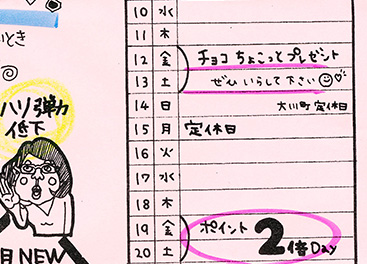 いとき
ハリ弾力
低下
月 NEW
10 水
11 木
12 金 チョコちょこっとプレゼント
13 土 ぜひいらして下さい
14 日 大川町定休日
15 月 定休日
16 火
17 水
18 木
19 金 ポイント2倍Day
20 土